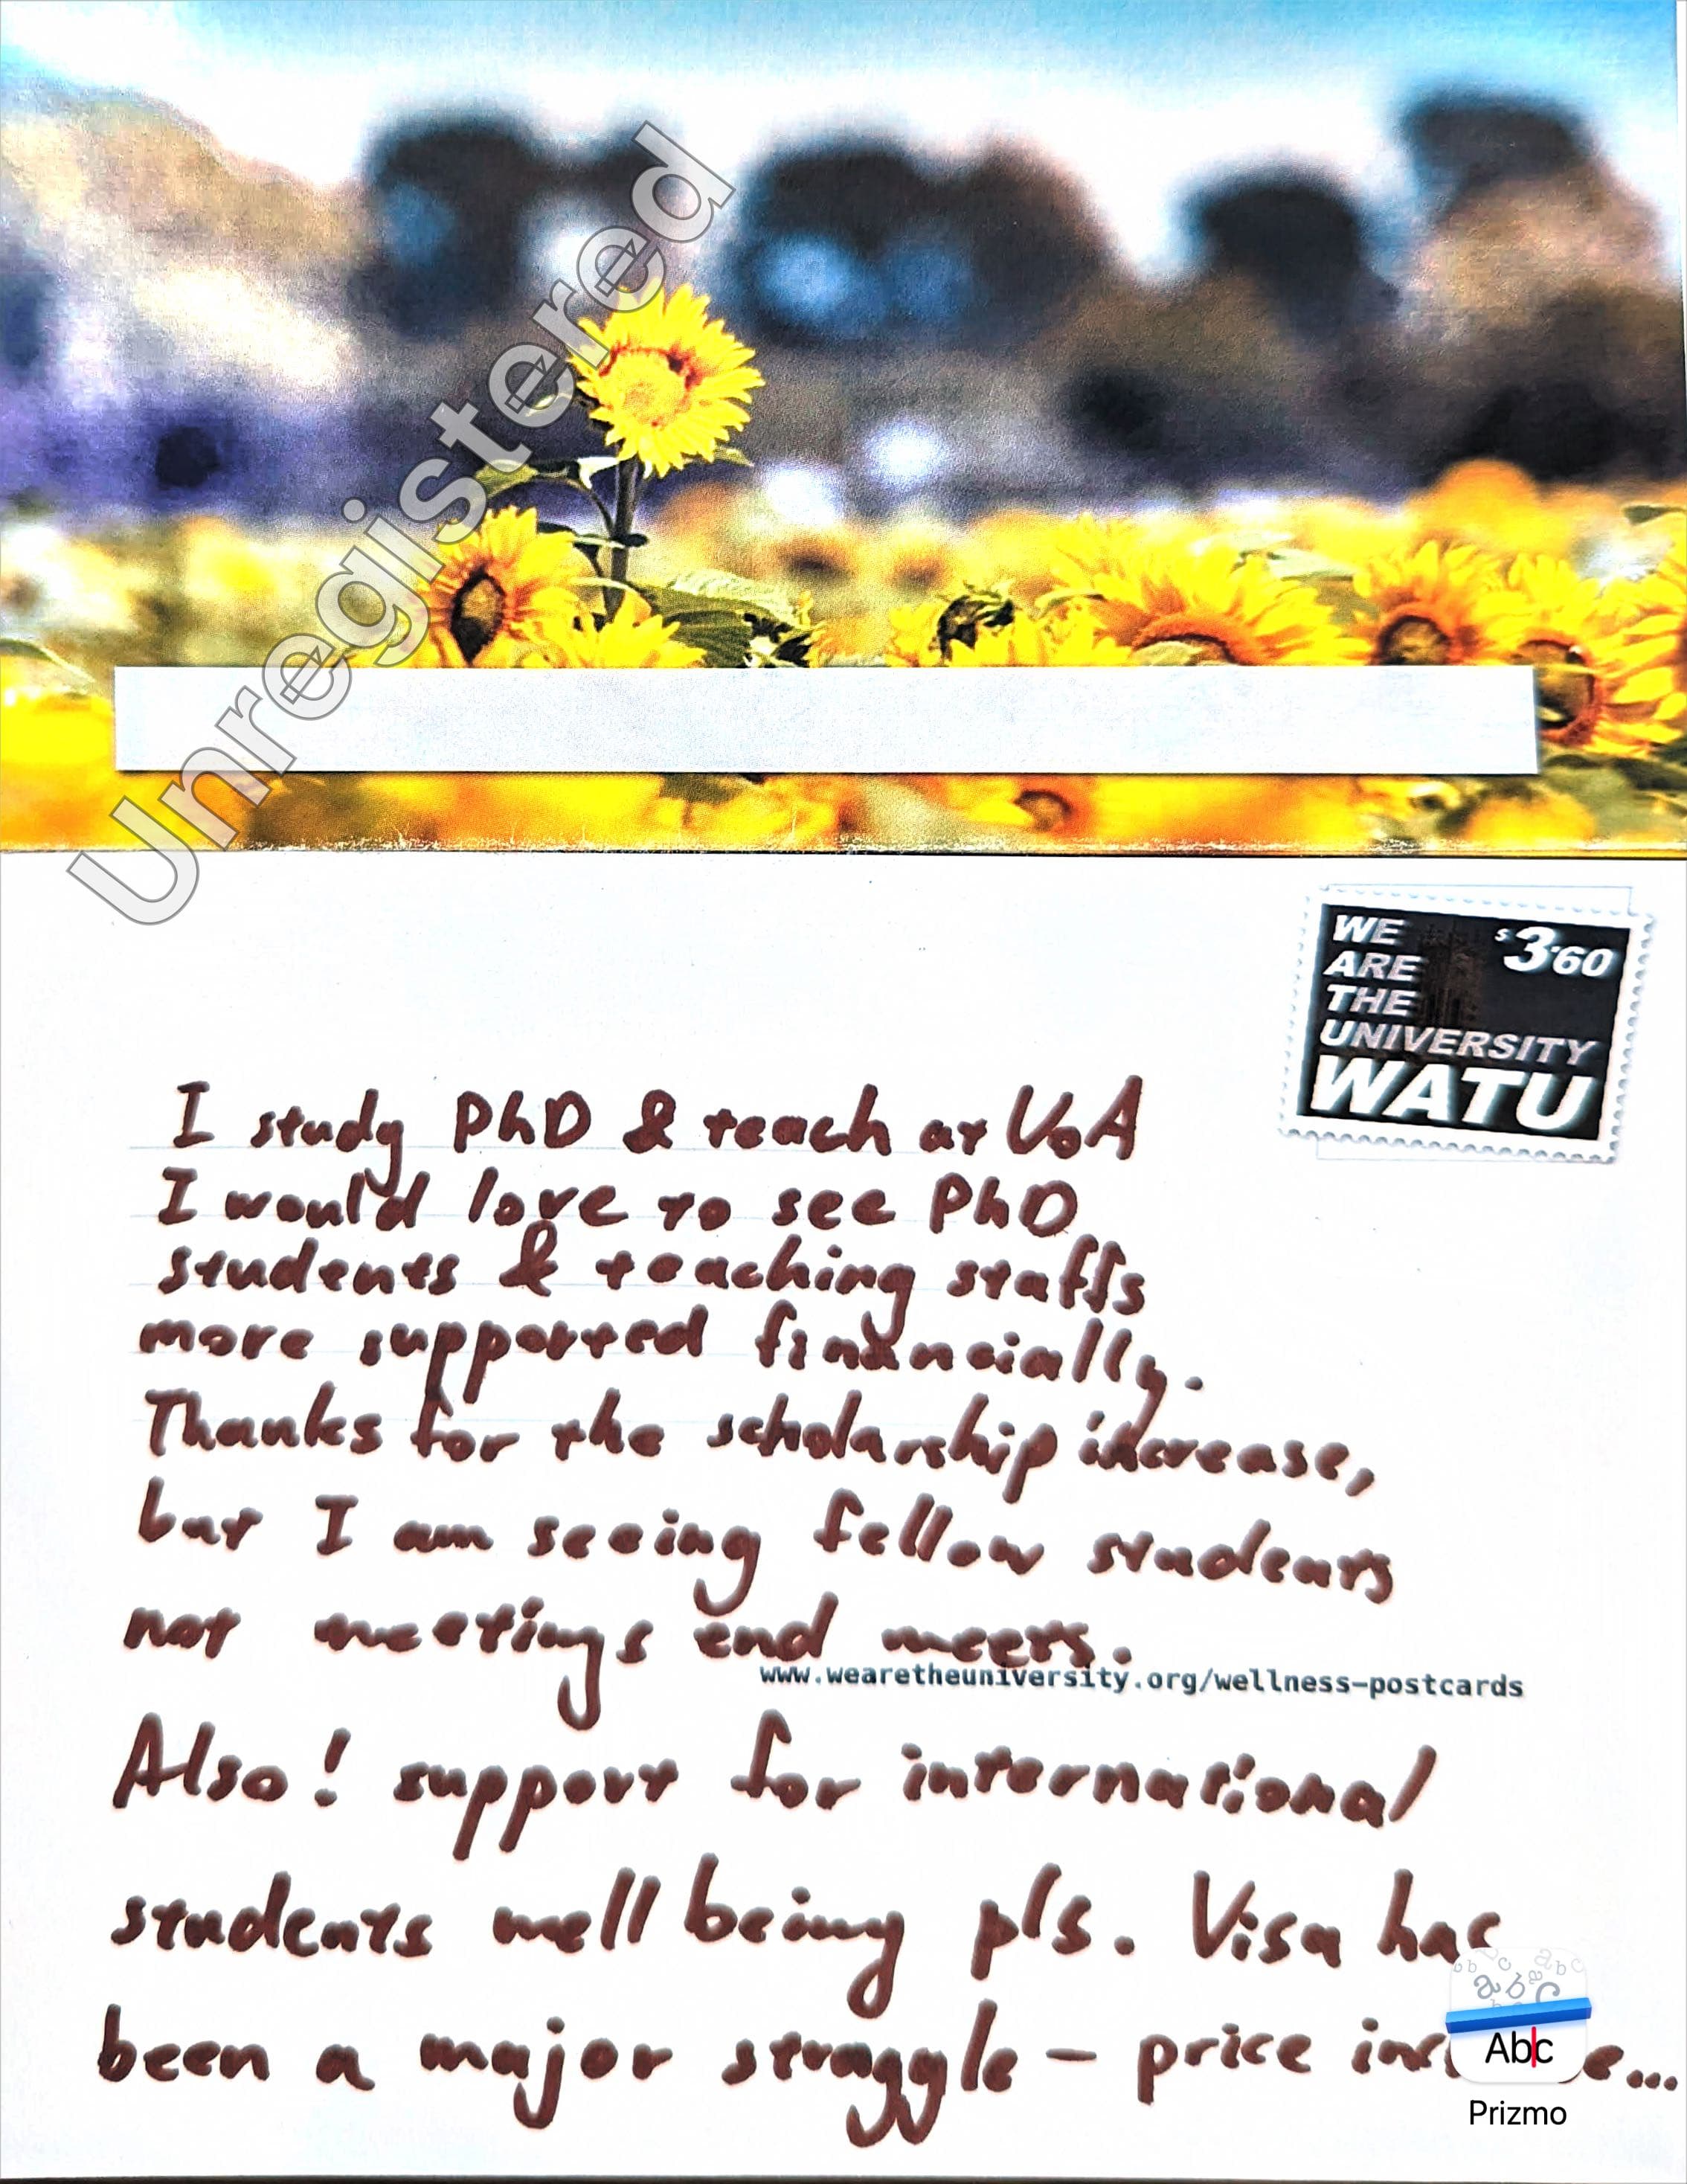 Unregistered
WE
ARE
THE
UNIVERSITY
WATU
$3.60
I study PhD & teach at UoA
I would love to see PhD
students & teaching staffs
more supported financially.
Thanks for the scholarship increase,
but I am seeing fellow students
not meetings end meets.
www.wearetheuniversity.org/wellness-postcards
Also! support for international
students well being pls. Visa has
been a major struggle – price
Abc
Prizmo